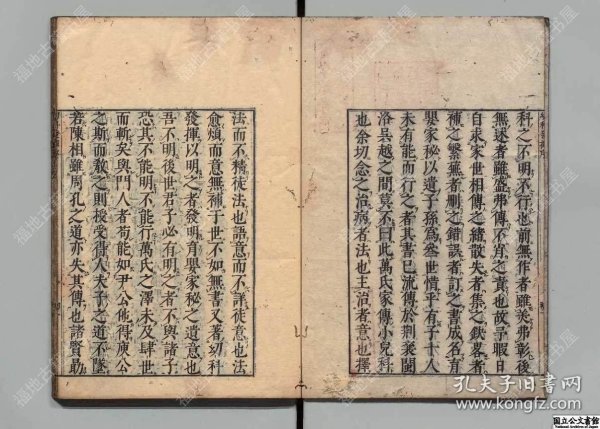 科之不明不行也前無作者雖美弗彰後
無述者雖盛弗傳不肖之責也故予暇日
自求家世相傳之緒散失者集之缺畧者
補之繁蕪者刪之錯誤者訂之書成名育
嬰家秘以遺子孫為叁世惜乎有子十人
未有能而行之者其書已流傳於荊襄閩
洛吳越之間莫不曰此萬氏家傳小兒科
也余切念之治病者法也主治者意也擇
法而不精徒法也語意而不詳徒意也法
愈煩而意無補于世不如無書又著幼科
發揮以明之者發明育嬰家秘之遺意也
吾不明後世君子必有明之者不與諸子
恐其不能明不能行萬氏之澤未及肆世
而斬矣與門人者苟能如尹公他得庾公
之斯而教之則授受得人夫子之道不墜
若陳相雖周孔之道亦失其傳也諸賢勗
福地古旧书屋
孔夫子旧书网
www.kongfz.com
国立公文書館
National Archives of Japan